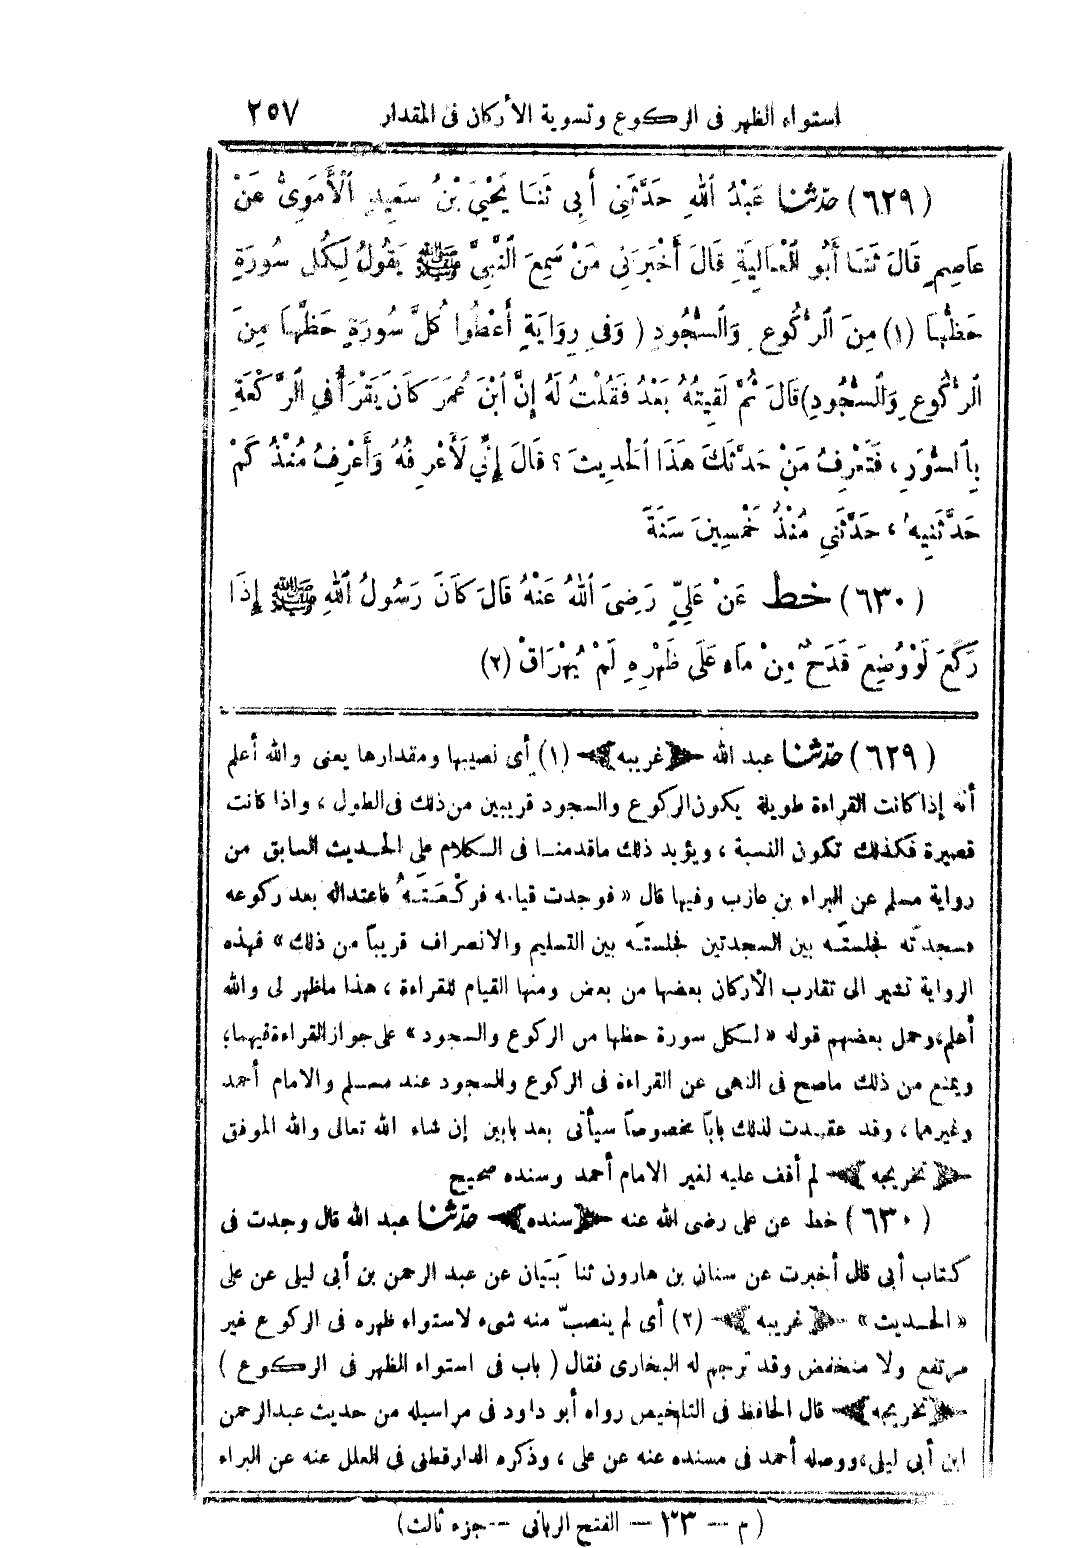 استواء الظهر فى الركوع وتسوية الأركان فى المقدار ٢٥٧
(٦٢٩) حَدَّثَنَا عَبْدُ اللهِ حَدَّثَنِى أَبِى ثَنَا يَحْيَى بْنُ سَعِيدٍ الْأَمَوِىُّ عَنْ
عَاصِمٍ قَالَ ثَنَا أَبُو الْعَالِيَةِ قَالَ أَخْبَرَنِى مَنْ سَمِعَ النَّبِىَّ ﷺ يَقُولُ لِكُلِّ سُورَةٍ
حَظُّهَا (١) مِنَ الرُّكُوعِ وَالسُّجُودِ (وَفِى رِوَايَةٍ أَعْطُوا كُلَّ سُورَةٍ حَظَّهَا مِنَ
الرُّكُوعِ وَالسُّجُودِ) قَالَ ثُمَّ لَقِيتُهُ بَعْدُ فَقُلْتُ لَهُ إِنَّ ابْنَ عُمَرَ كَانَ يَقْرَأُ فِى الرَّكْعَةِ
بِالسُّوَرِ ، فَتَعْرِفُ مَنْ حَدَّثَكَ هَذَا الْحَدِيثَ ؟ قَالَ إِنِّى لَأَعْرِفُهُ وَأَعْرِفُ مُنْذُ كَمْ
حَدَّثَنِيهِ ، حَدَّثَنِى مُنْذُ خَمْسِينَ سَنَةً
(٦٣٠) خط عَنْ عَلِىٍّ رَضِىَ اللهُ عَنْهُ قَالَ كَانَ رَسُولُ اللهِ ﷺ إِذَا
رَكَعَ لَوْ وُضِعَ قَدَحٌ مِنْ مَاءٍ عَلَى ظَهْرِهِ لَمْ يُهْرَاقْ (٢)
(٦٢٩) حدثنا عبد الله ﴿غريبه﴾ (١) أى نصيبها ومقدارها يعنى والله أعلم
أنه إذا كانت القراءة طويلة يكون الركوع والسجود قريبين من ذلك فى الطول ، واذا كانت
قصيرة فكذلك تكون النسبة ، ويؤيد ذلك ما قدمنا فى الكلام على الحديث السابق من
رواية مسلم عن البراء بن عازب وفيها قال « فوجدت قيامه فركعَتَهُ فاعتداله بعد ركوعه
فسجدته فجلسته بين السجدتين فجلسته بين التسليم والانصراف قريباً من ذلك » فهذه
الرواية تشير الى تقارب الأركان بعضها من بعض ومنها القيام للقراءة ، هذا ما ظهر لى والله
أعلم ، وحمل بعضهم قوله « لكل سورة حظها من الركوع والسجود » على جواز القراءة فيهما ،
ويمنع من ذلك ماصح فى النهى عن القراءة فى الركوع والسجود عند مسلم والامام أحمد
وغيرهما ، وقد عقدت لذلك باباً مخصوصاً سيأتى بعد بابين إن شاء الله تعالى والله الموفق
﴿تخريجه﴾ لم أقف عليه لغير الامام أحمد وسنده صحيح
(٦٣٠) خط عن على رضى الله عنه ﴿سنده﴾ حدثنا عبد الله قال وجدت فى
كتاب أبى قال أخبرت عن سنان بن هارون ثنا بَيَان عن عبد الرحمن بن أبى ليلى عن على
« الحديث » ﴿غريبه﴾ (٢) أى لم ينصبّ منه شىء لاستواء ظهره فى الركوع غير
مرتفع ولا منخفض وقد ترجم له البخارى فقال (باب فى استواء الظهر فى الركوع)
﴿تخريجه﴾ قال الحافظ فى التلخيص رواه أبو داود فى مراسيله من حديث عبد الرحمن
ابن أبى ليلى ، ووصله أحمد فى مسنده عنه عن على ، وذكره الدارقطنى فى العلل عنه عن البراء
(م -- ٣٣ -- الفتح الربانى -- جزء ثالث)